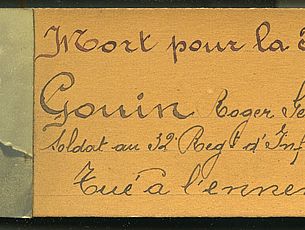 Mort pour la
Gouin Roger
Soldat au 32e Regt d'Inf
Tué à l'enne